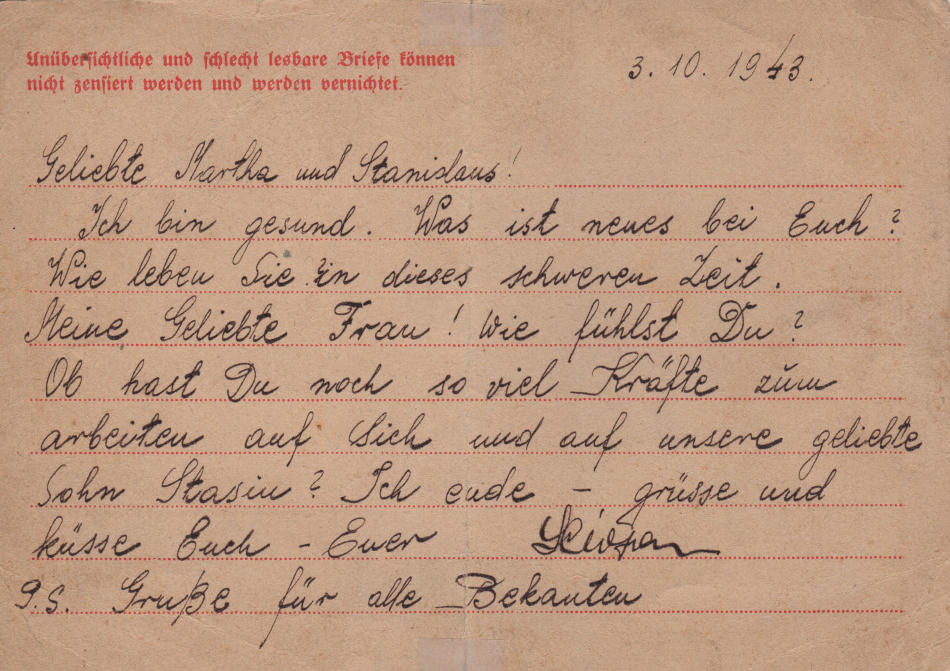 Unübersichtliche und schlecht lesbare Briefe können
nicht zensiert werden und werden vernichtet.
3. 10. 1943.
Geliebte Martha und Stanislaus!
Ich bin gesund. Was ist neues bei Euch?
Wie leben Sie in dieses schweren Zeit.
Meine Geliebte Frau! Wie fühlst Du?
Ob hast Du noch so viel Kräfte zum
arbeiten auf Sich und auf unsere geliebte
Sohn Stasiu? Ich ende – grüsse und
küsse Euch – Euer
P.S. Gruße für alle Bekanten